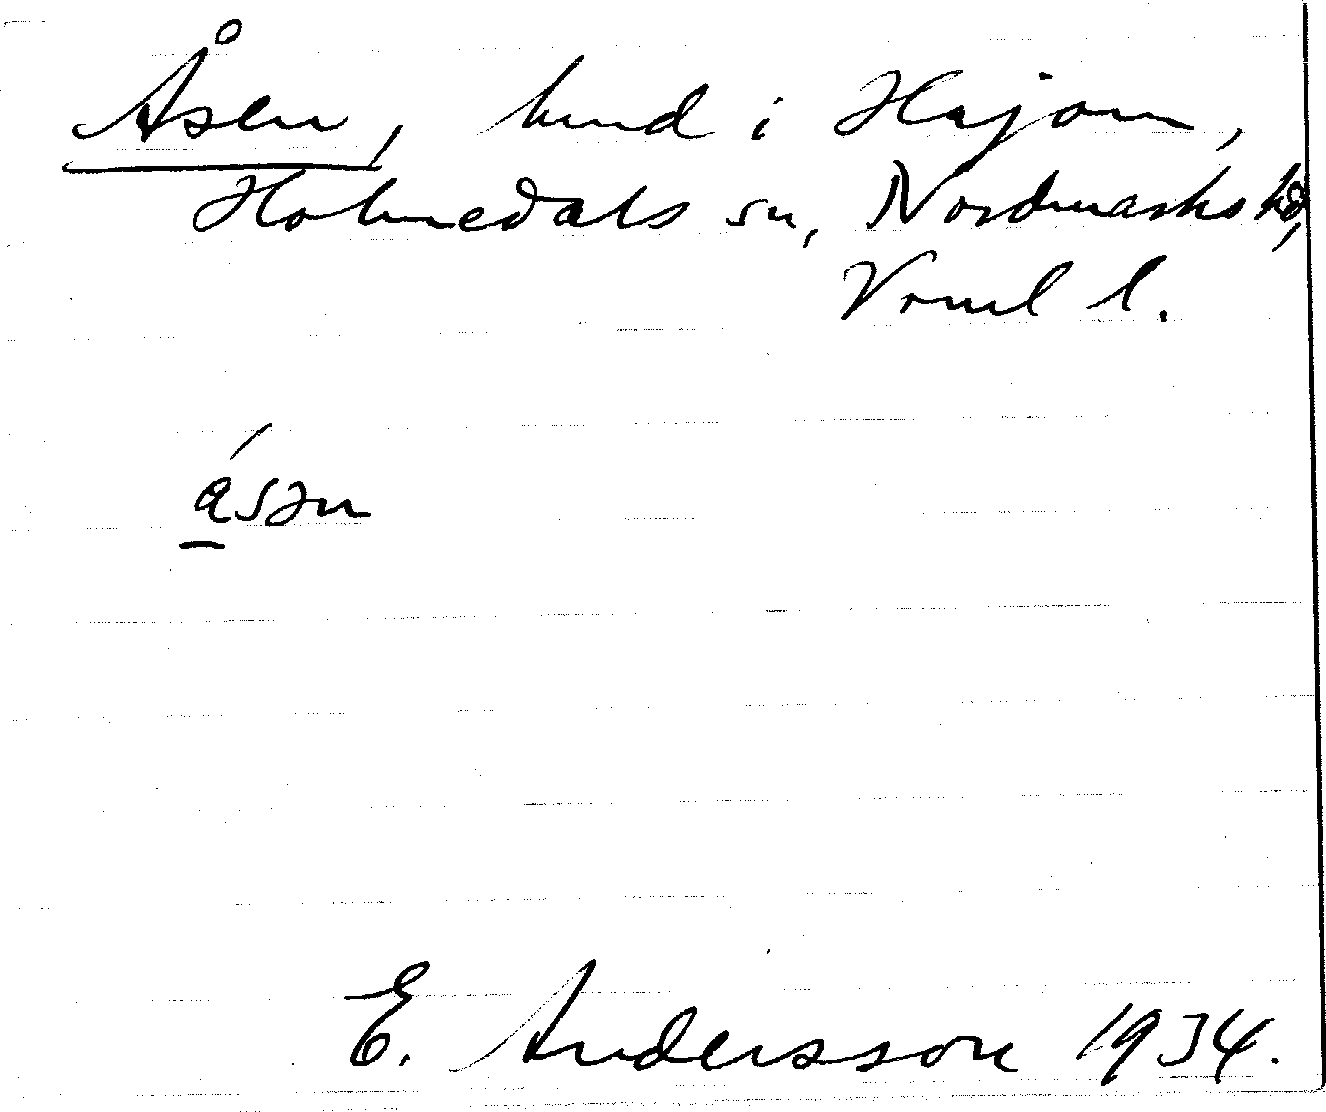 Åsen, hmd i Hajom,
Holmedals sn, Nordmarks hd,
Vrml l.
á̲sən
E. Andersson 1934.